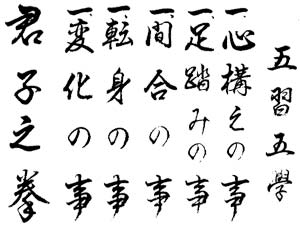 五習五學
一、心構えの事
一、足踏みの事
一、間合の事
一、転身の事
一、変化の事
君子之拳